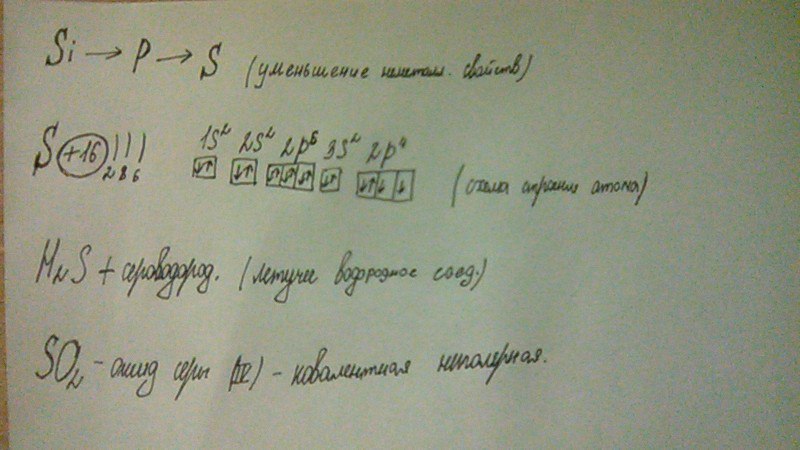 Si → P → S (уменьшение неметалл. свойств)
S +16 ))) 1S² 2S² 2p⁶ 3S² 2p⁴
2 8 6 (схема строение атома)
H₂S + сероводород. (летучее водородное соед.)
SO₂ - оксид серы (IV) - ковалентная неполерная.